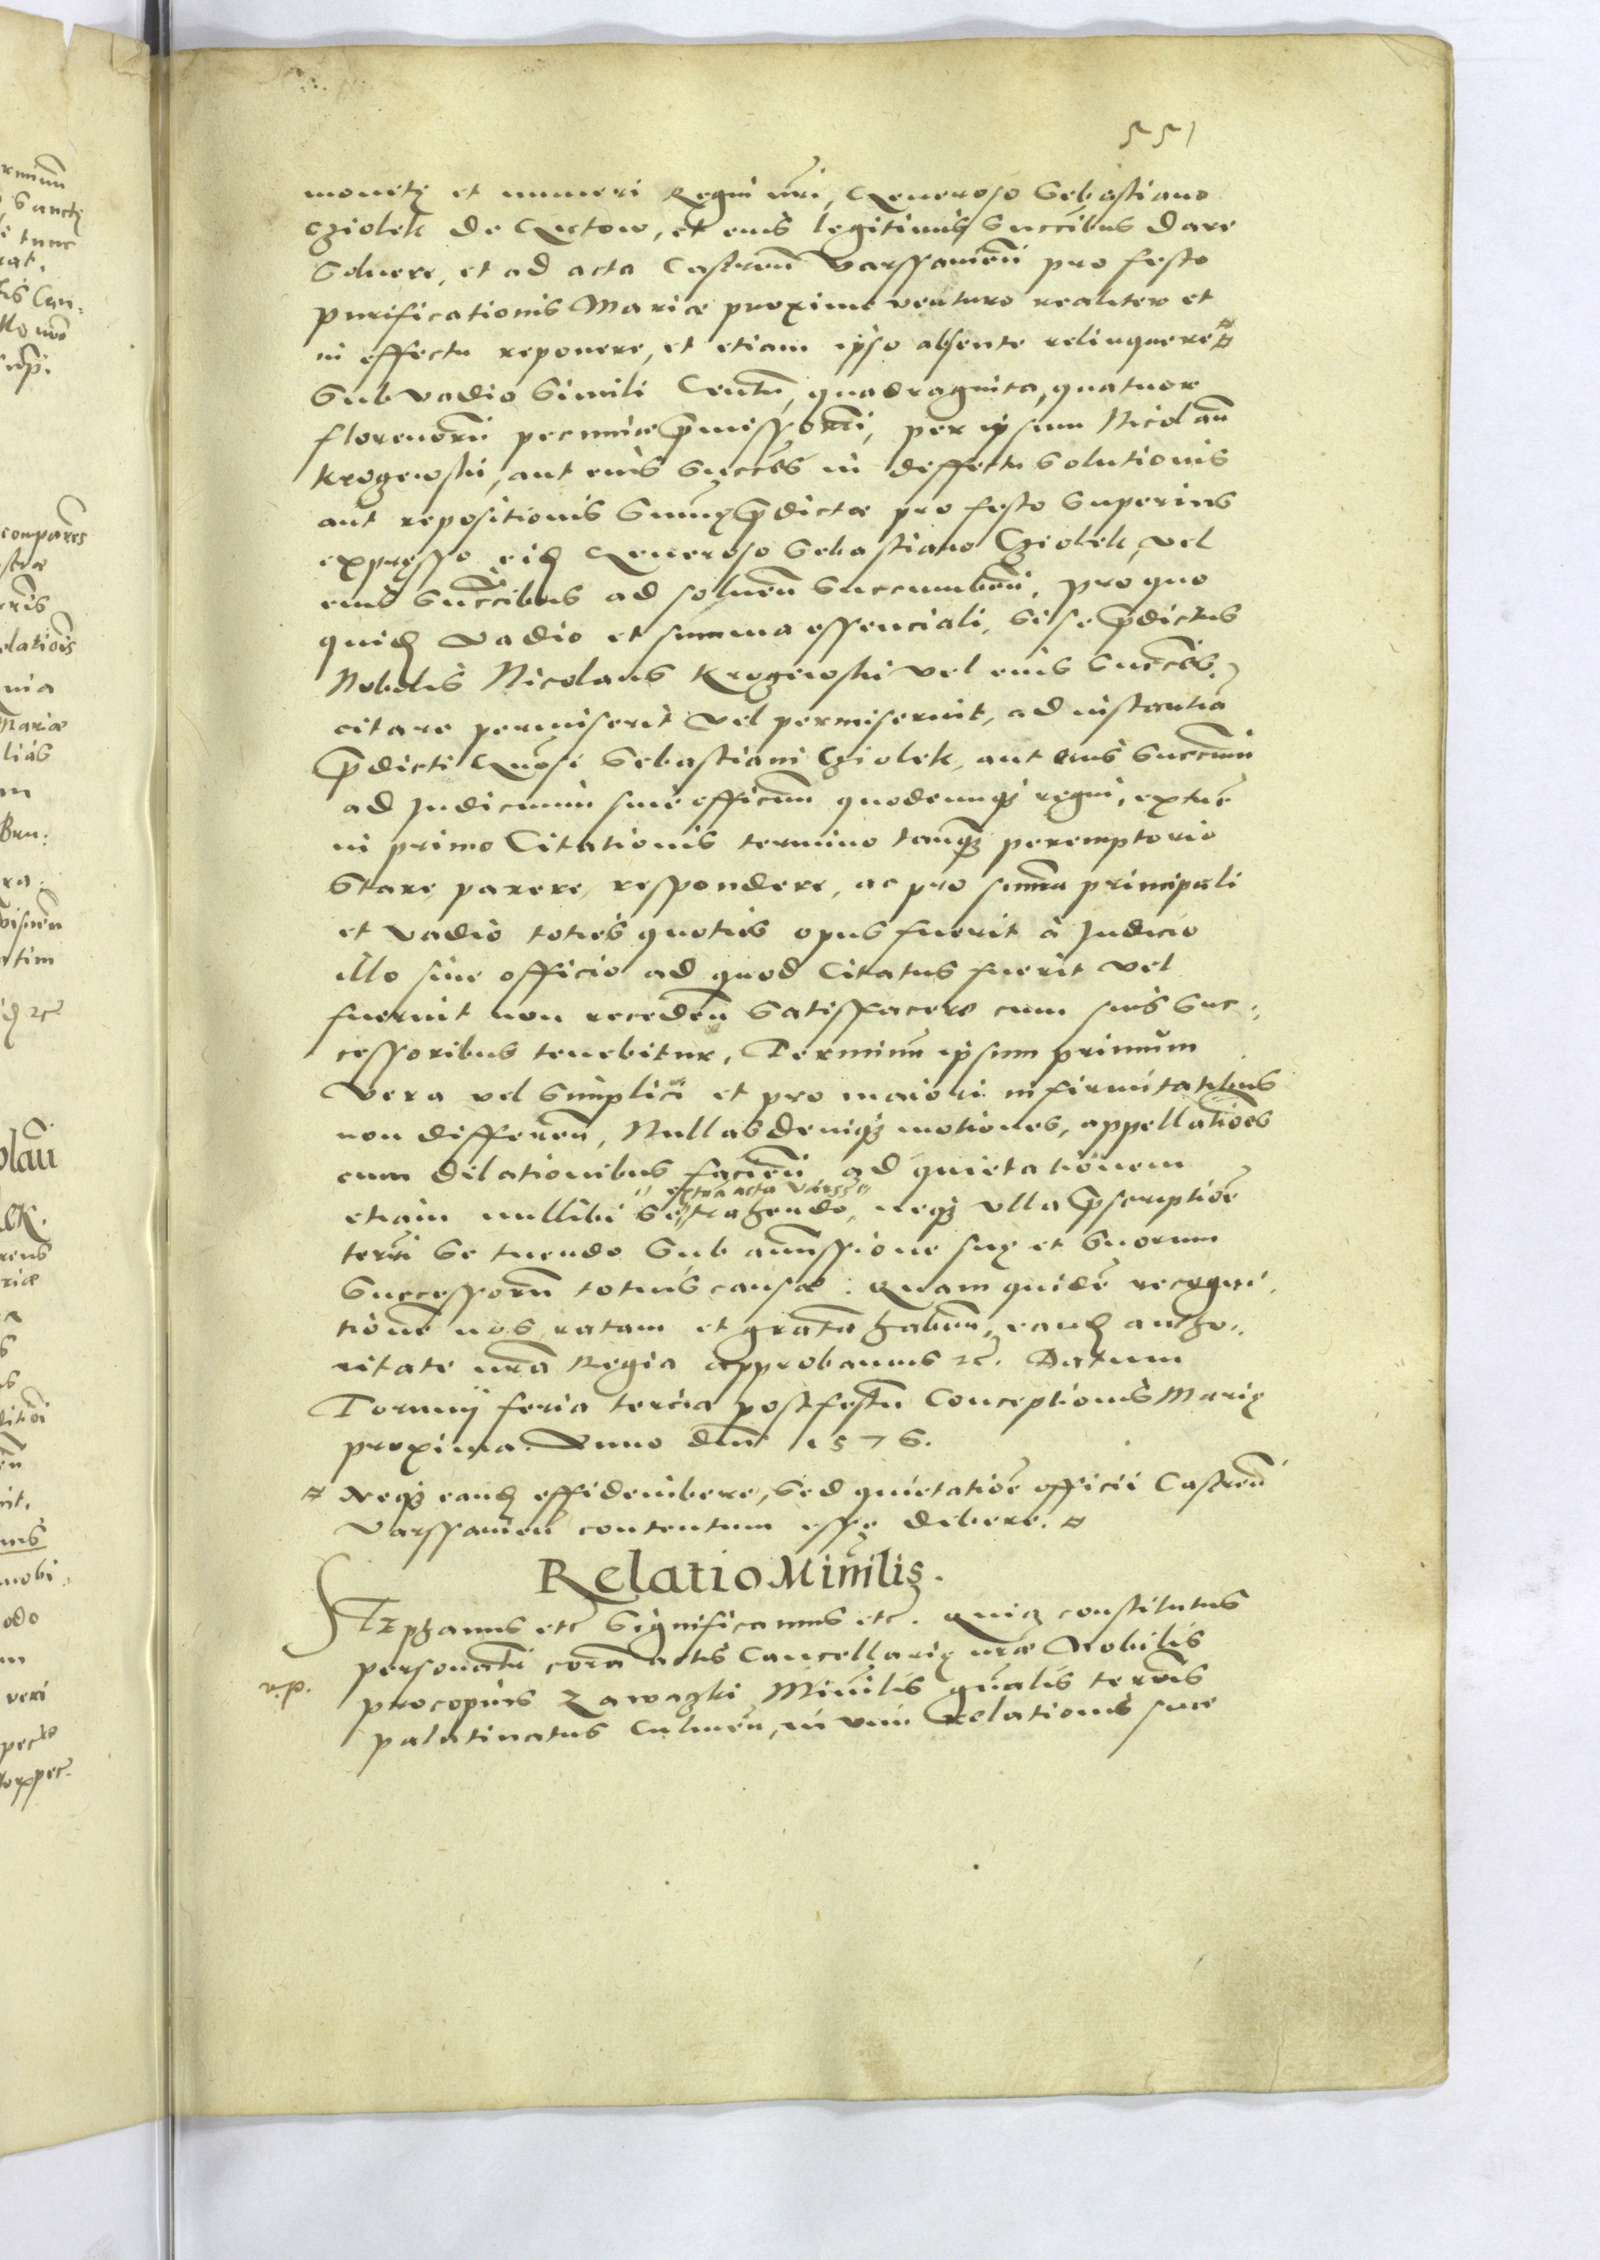 551
monetę et numeri Regni nri, Generoso Sebastiano
Cziolek de , et eius legitimis Succibus dare
Soluere, et ad acta Castren Varssauien pro festo
purificationis Mariae proxime venturo realiter et
in effectu reponere, et etiam ipso absente relinquere ¤
Sub vadio Simili Centu, quadraginta, quatuor
florenoru pecuniae pmissorii, per ipsum Nicolau
Krogewski, aut eius Succes in deffectu Solutionis
aut repositionis Summę pdictae pro festo Superius
expresso eid Generoso Sebastiano Cziolek, vel
eius Succcibus ad soluen Succumben, pro quo
quid vadio et summa essenciali, Si se pdictus
Nobilis Nicolaus Krogewski vel eius Succes.
citare permiserit vel permiserint, ad instantia
pdicti Gnosi Sebastiani Cziolek, aut eius Succum
ad Judicium siue officium quodcunq; regni, extuc
in primo Citationis termino tanq; peremptorio
Stare, parere, respondere, ac pro suma principali
et vadio toties quoties opus fuerit à Judicio
illo siue officio ad quod Citatus fuerit vel
fuerint non receden Satisfacere cum suis Suc,,
cessoribus tenebitur, Terminu ipsum primum
vera vel Simplici et pro maiori infirmitatibus
non differen, Nullas deniq; motiones, appellatioes
cum dilationibus facien ad quietationem
extra acta Varss
etiam nullibi Se trahendo, neq; vlla pscriptioe
terrri Se tuendo Sub amissione suę et Suorum
Successoru totius causae. Quam quide recogni,
tione nos ratam et grata haben, eand autho,,
ritate nra Regia approbamus etc. Datum
Torunij feria tercia post festu Conceptionis Marię
proxima. Anno dni 1576.
¤ Neq; eand effidenibere, Sed quietatioe officii Castren
Varssauien contentum esse debere. ¤
Relatio Minilis.
STEphanus etc Significamus etc. Quia constitutus
personalr cora actis Cancellarię nrae Nobilis
procopius Zawazki Minilis gnalis terris
palatinatus Culmen, in vim relationis suae